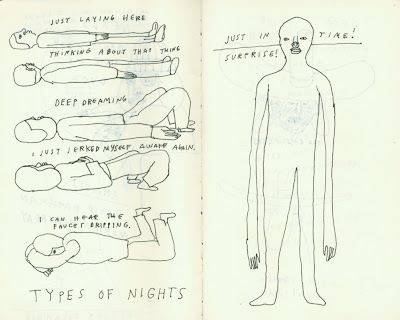 JUST LAYING HERE
THINKING ABOUT THAT THING
DEEP DREAMING
I JUST JERKED MYSELF AWAKE AGAIN.
I CAN HEAR THE
FAUCET DRIPPING.
TYPES OF NIGHTS
JUST IN TIME!
SURPRISE!